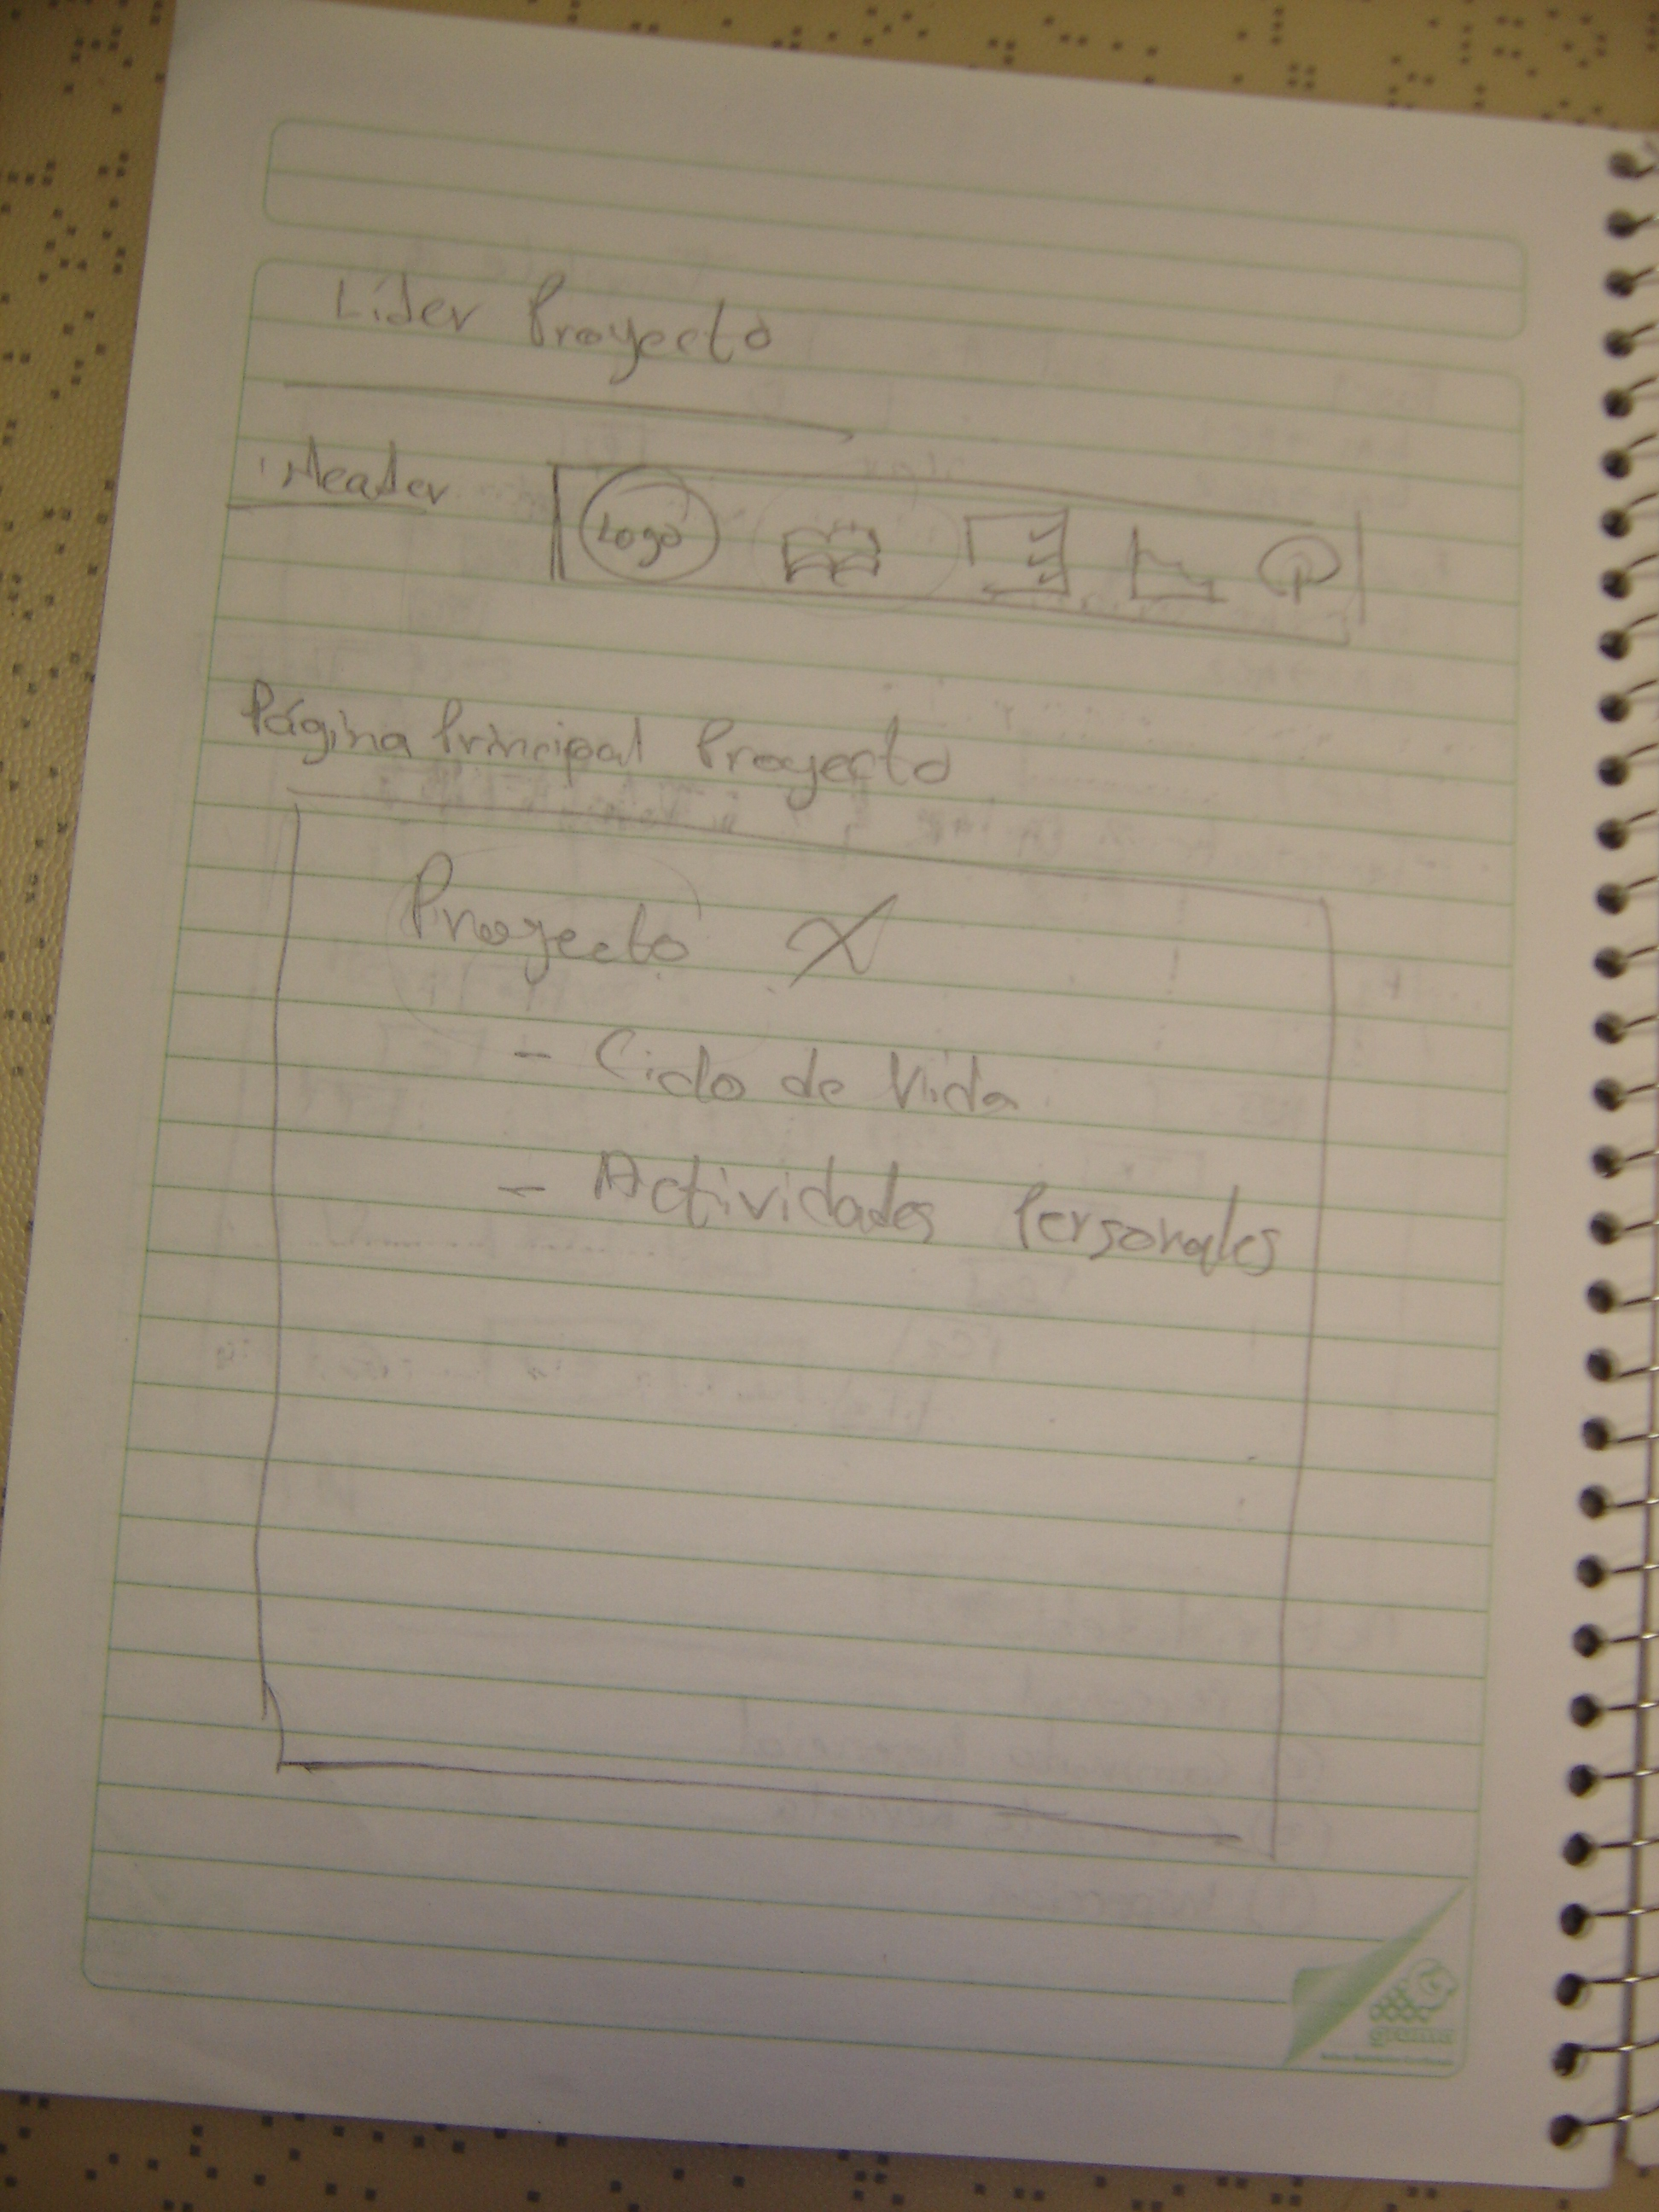 Líder Proyecto
Header
Logo
Página Principal Proyecto
Proyecto X
- Ciclo de Vida
- Actividades Personales